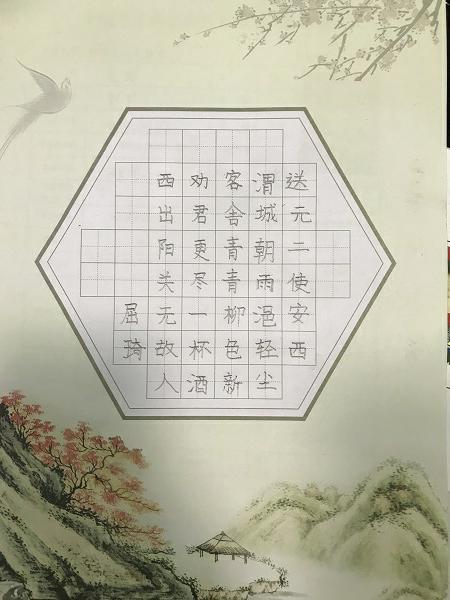 送元二使安西
渭城朝雨浥轻尘
客舍青青柳色新
劝君更尽一杯酒
西出阳关无故人
屈琦